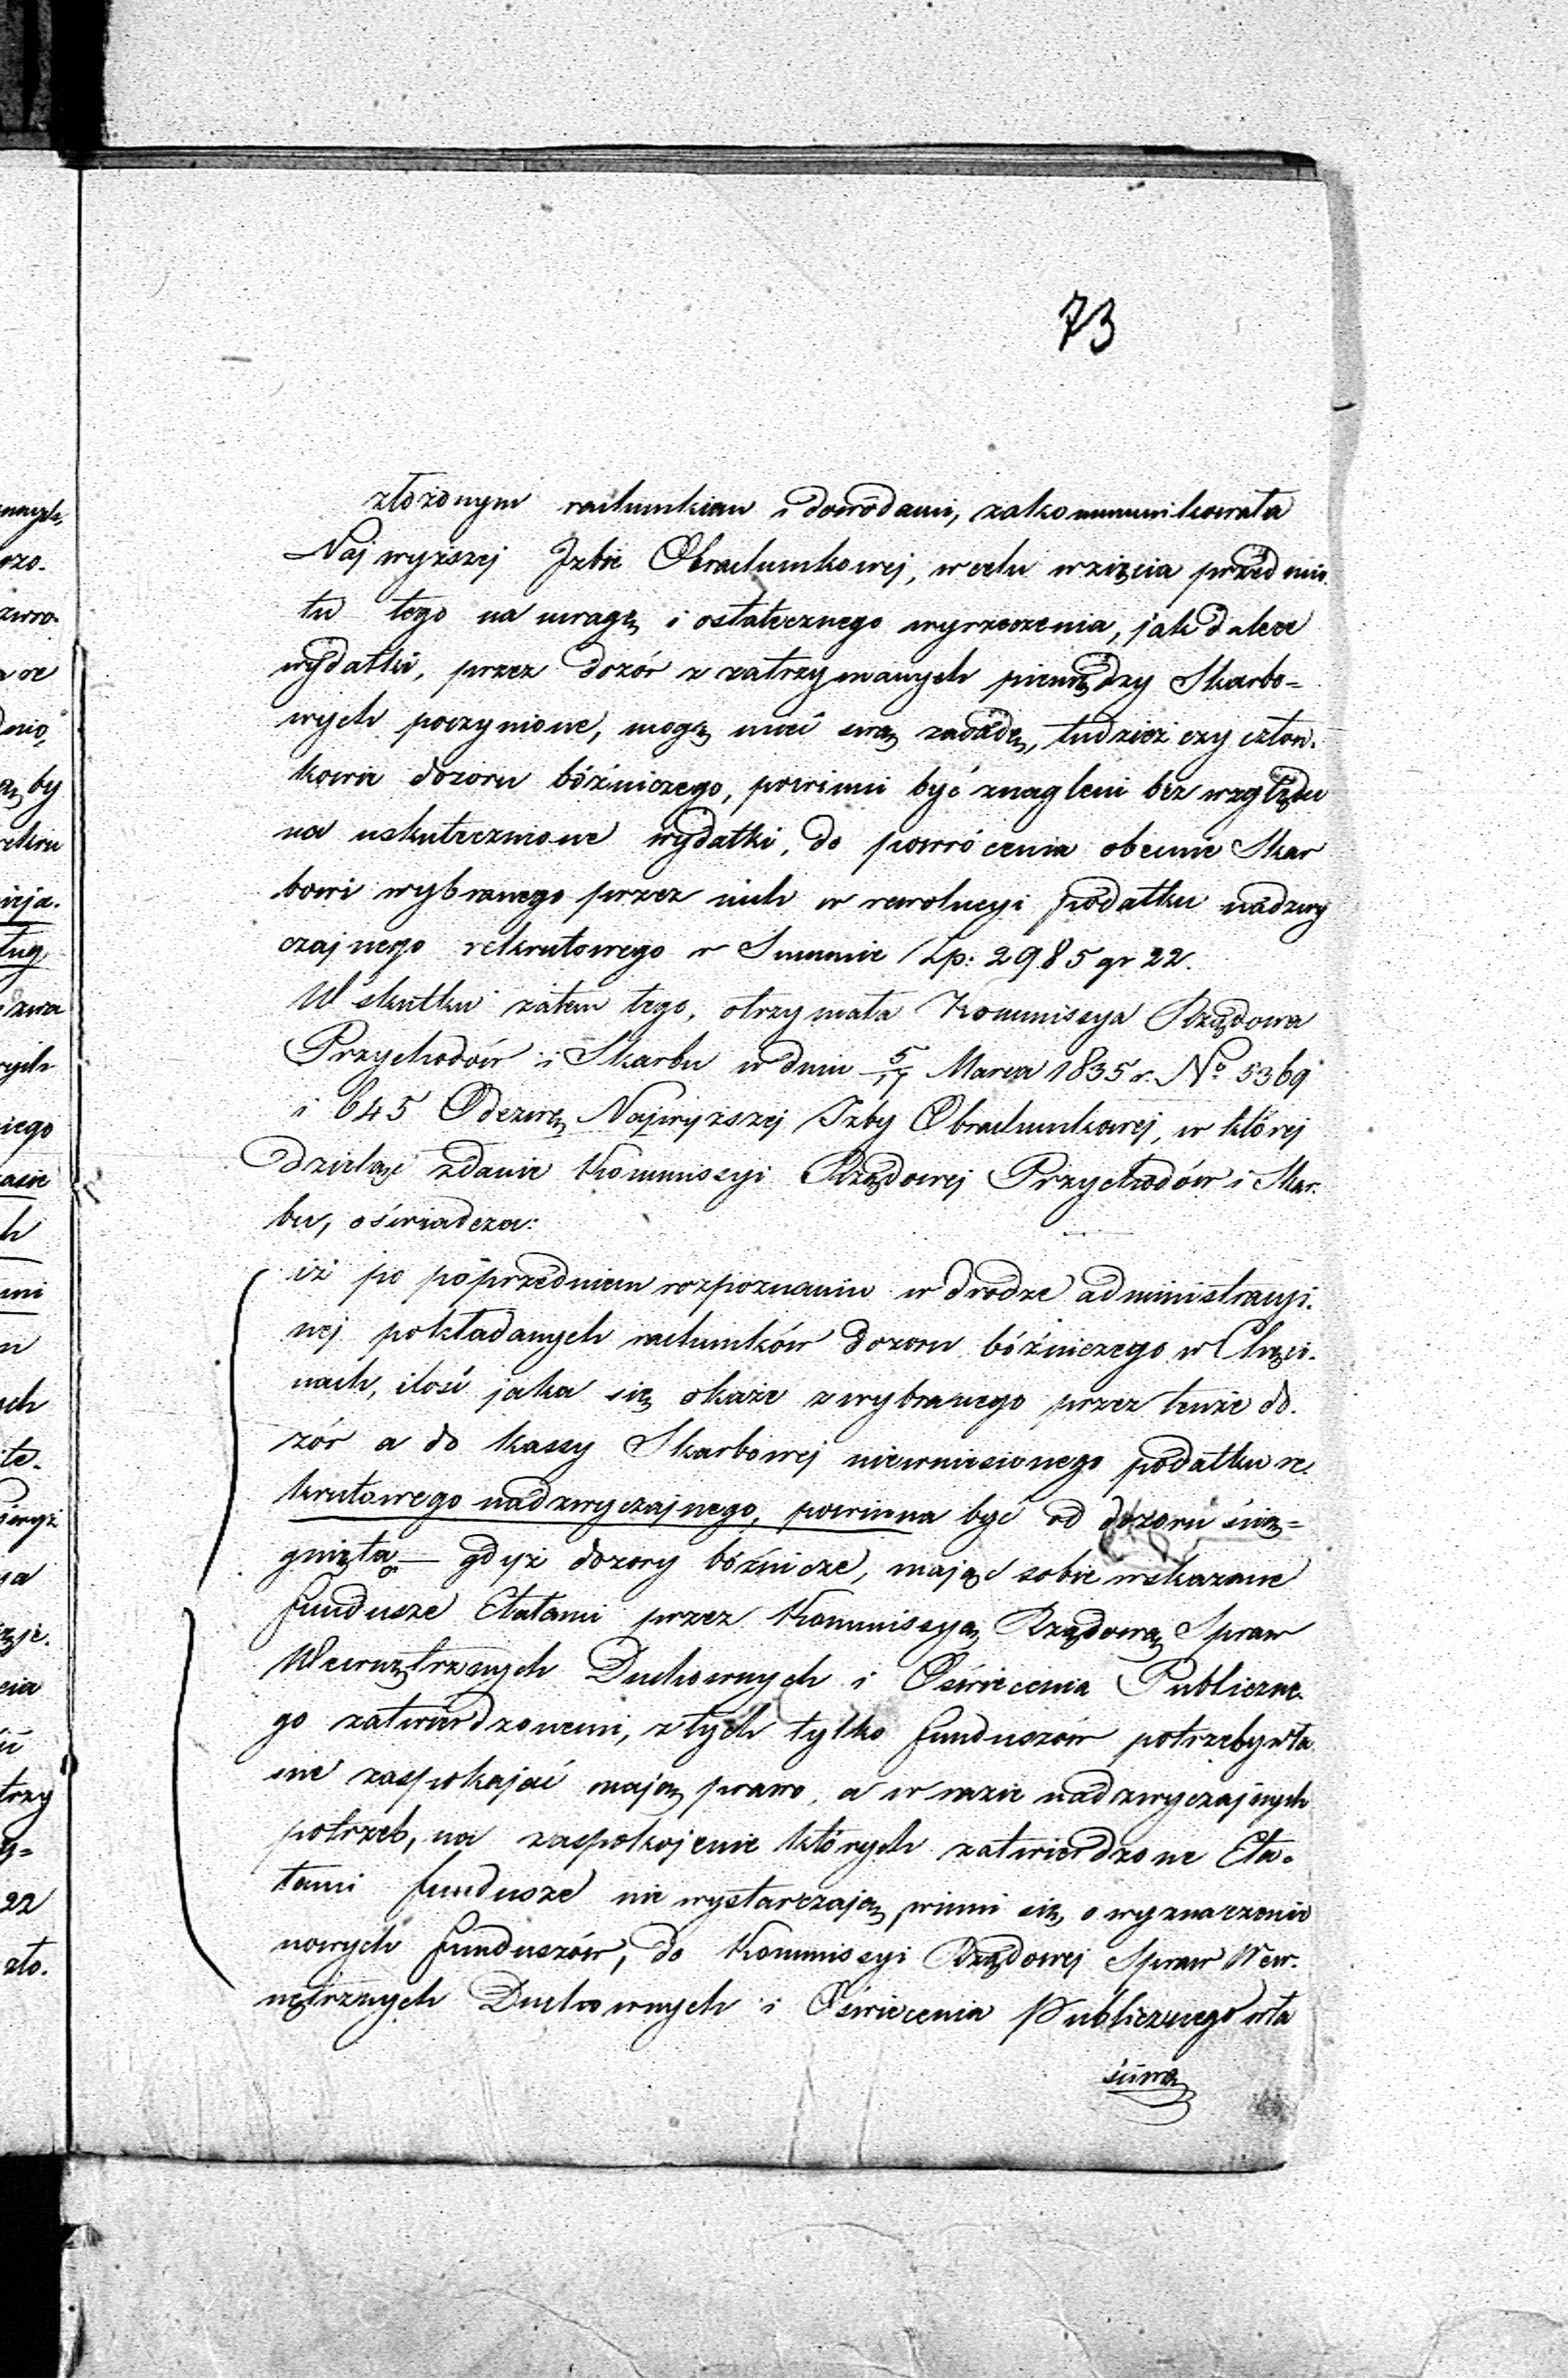 73
złożonym rachunkiem i dowodami, zakommunikowała
Najwyższej Izbie Obrachunkowej, w celu wzięcia przedmio
tu tego na uwagę i ostatecznego wyrzeczenia, jak dalece
wydatki, przez dozór z zatrzymanych pieniędzy Skarbo=
wych poczynione, mogą mieć swą zasadę, tudzież czy człon.
kowie dozoru bóżniczego, powinni być znagleni bez względu
na uskutecznione wydatki, do powrócenia obecnie Skar
bowi wybranego przez nich w rewolucyi podatku nadzwy
czajnego rekrutowego w Summie Zp: 2985 gr 22.
W skutku zatem tego, otrzymała Kommissya Rządowa
Przychodów i Skarbu w dniu 5/17 Marca 1835 r. No 5369
i 645 Odezwę Najwyższej Izby Obrachunkowej, w której
dzieląc zdanie Kommissyi Rządowej Przychodów i Skar.
bu, oświadcza:
iż po poprzedniem rozpoznaniu w drodze administracyi.
nej pokładanych rachunków dozoru bóżniczego w Chęci.
nach, ilość jaka się okaże z wybranego przez tenże do.
zór a do kassy Skarbowej niewniesionego podatku re.
krutowego nadzwyczajnego, powinna być od dozoru ścią=
gniętą — gdyż dozory bóżnicze, mając sobie wskazane
fundusze Etatami przez Kommissyą Rządową Spraw
Wewnętrznych Duchownych i Oświecenia Publiczne.
go zatwierdzonemi, z tych tylko funduszów potrzeby wła
sne zaspokajać mają prawo, a w razie nadzwyczajnych
potrzeb, na zaspokojenie których zatwierdzone Eta.
tami fundusze nie wystarczają, winni się o wyznaczenie
nowych funduszów, do Kommissyi Rządowej Spraw Wew.
nętrznych Duchownych i Oświecenia Publicznego wła
ściwą